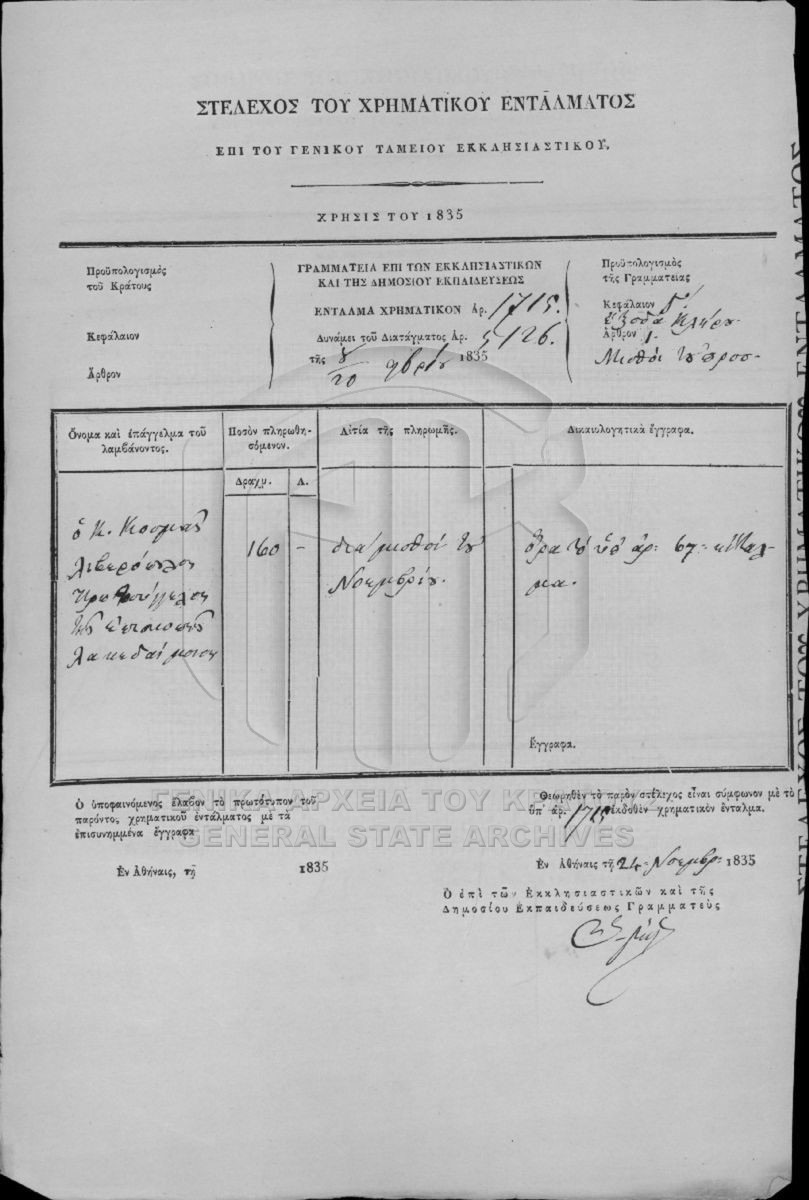 ΣΤΕΛΕΧΟΣ ΤΟΥ ΧΡΗΜΑΤΙΚΟΥ ΕΝΤΑΛΜΑΤΟΣ
ΕΠΙ ΤΟΥ ΓΕΝΙΚΟΥ ΤΑΜΕΙΟΥ ΕΚΚΛΗΣΙΑΣΤΙΚΟΥ,
ΧΡΗΣΙΣ ΤΟΥ 1835
Προϋπολογισμὸς
τοῦ Κράτους
Κεφάλαιον
Ἄρθρον
ΓΡΑΜΜΑΤΕΙΑ ΕΠΙ ΤΩΝ ΕΚΚΛΗΣΙΑΣΤΙΚΩΝ
ΚΑΙ ΤΗΣ ΔΗΜΟΣΙΟΥ ΕΚΠΑΙΔΕΥΣΕΩΣ
ΕΝΤΑΛΜΑ ΧΡΗΜΑΤΙΚΟΝ Ἀρ. 1715.
Δυνάμει τοῦ Διατάγματος Ἀρ. 5126.
τῆς 8/20 9βρίου 1835
Προϋπολογισμὸς
τῆς Γραμματείας
Κεφάλαιον Γ.
Ἔξοδα Κλήρου
Ἄρθρον 1.
Μισθοὶ τοῦ προσ-
Ὄνομα καὶ ἐπάγγελμα τοῦ
λαμβάνοντος.
Ποσὸν πληρωθη-
σόμενον.
Δραχμ.
Λ.
Αἰτία τῆς πληρωμῆς.
Δικαιολογητικὰ ἔγγραφα.
ὁ Κ. Κοσμᾶς
Λιβερόπουλος
Πρωτοσύγγελος
τῆς Ἐπισκοπῆς
Λακεδαίμονος
160 –
διὰ μισθοὺς τοῦ
Νοεμβρίου.
ὅρα τὸ ὑπ' ἀρ: 67 ἔνταλ-
μα.
Ἔγγραφα.
Ὁ ὑποφαινόμενος ἔλαβον τὸ πρωτότυπον τοῦ
παρόντος χρηματικοῦ ἐντάλματος μὲ τὰ
ἐπισυνημμένα ἔγγραφα
Ἐν Ἀθήναις, τῇ 1835
Θεωρηθὲν τὸ παρὸν στέλεχος εἶναι σύμφωνον μὲ τὸ
ὑπ' ἀρ. 1715 ἐκδοθὲν χρηματικὸν ἔνταλμα.
Ἐν Ἀθήναις τῇ 24 Νοεμβρ: 1835
Ὁ ἐπὶ τῶν Ἐκκλησιαστικῶν καὶ τῆς
Δημοσίου Ἐκπαιδεύσεως Γραμματεὺς
ΓΕΝΙΚΑ ΑΡΧΕΙΑ ΤΟΥ ΚΡΑΤΟΥΣ
GENERAL STATE ARCHIVES
ΣΤΕΛΕΧΟΣ ΤΟΥ ΧΡΗΜΑΤΙΚΟΥ ΕΝΤΑΛΜΑΤΟΣ